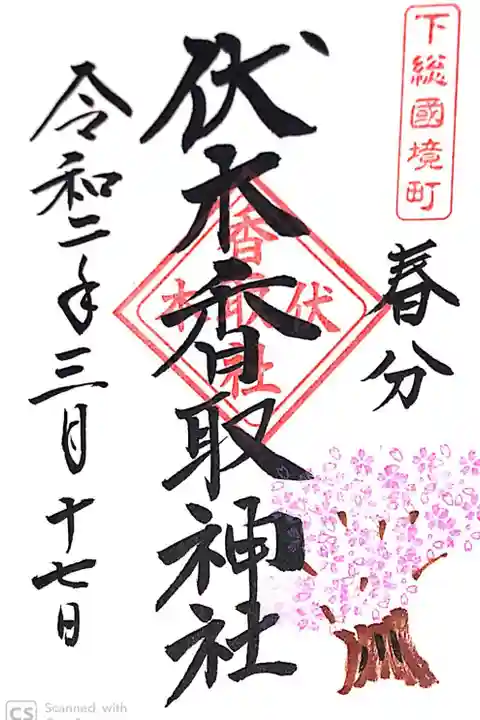 下総國境町
春分
伏木香取神社
伏木
香取社
令和二年三月十七日
CS Scanned with